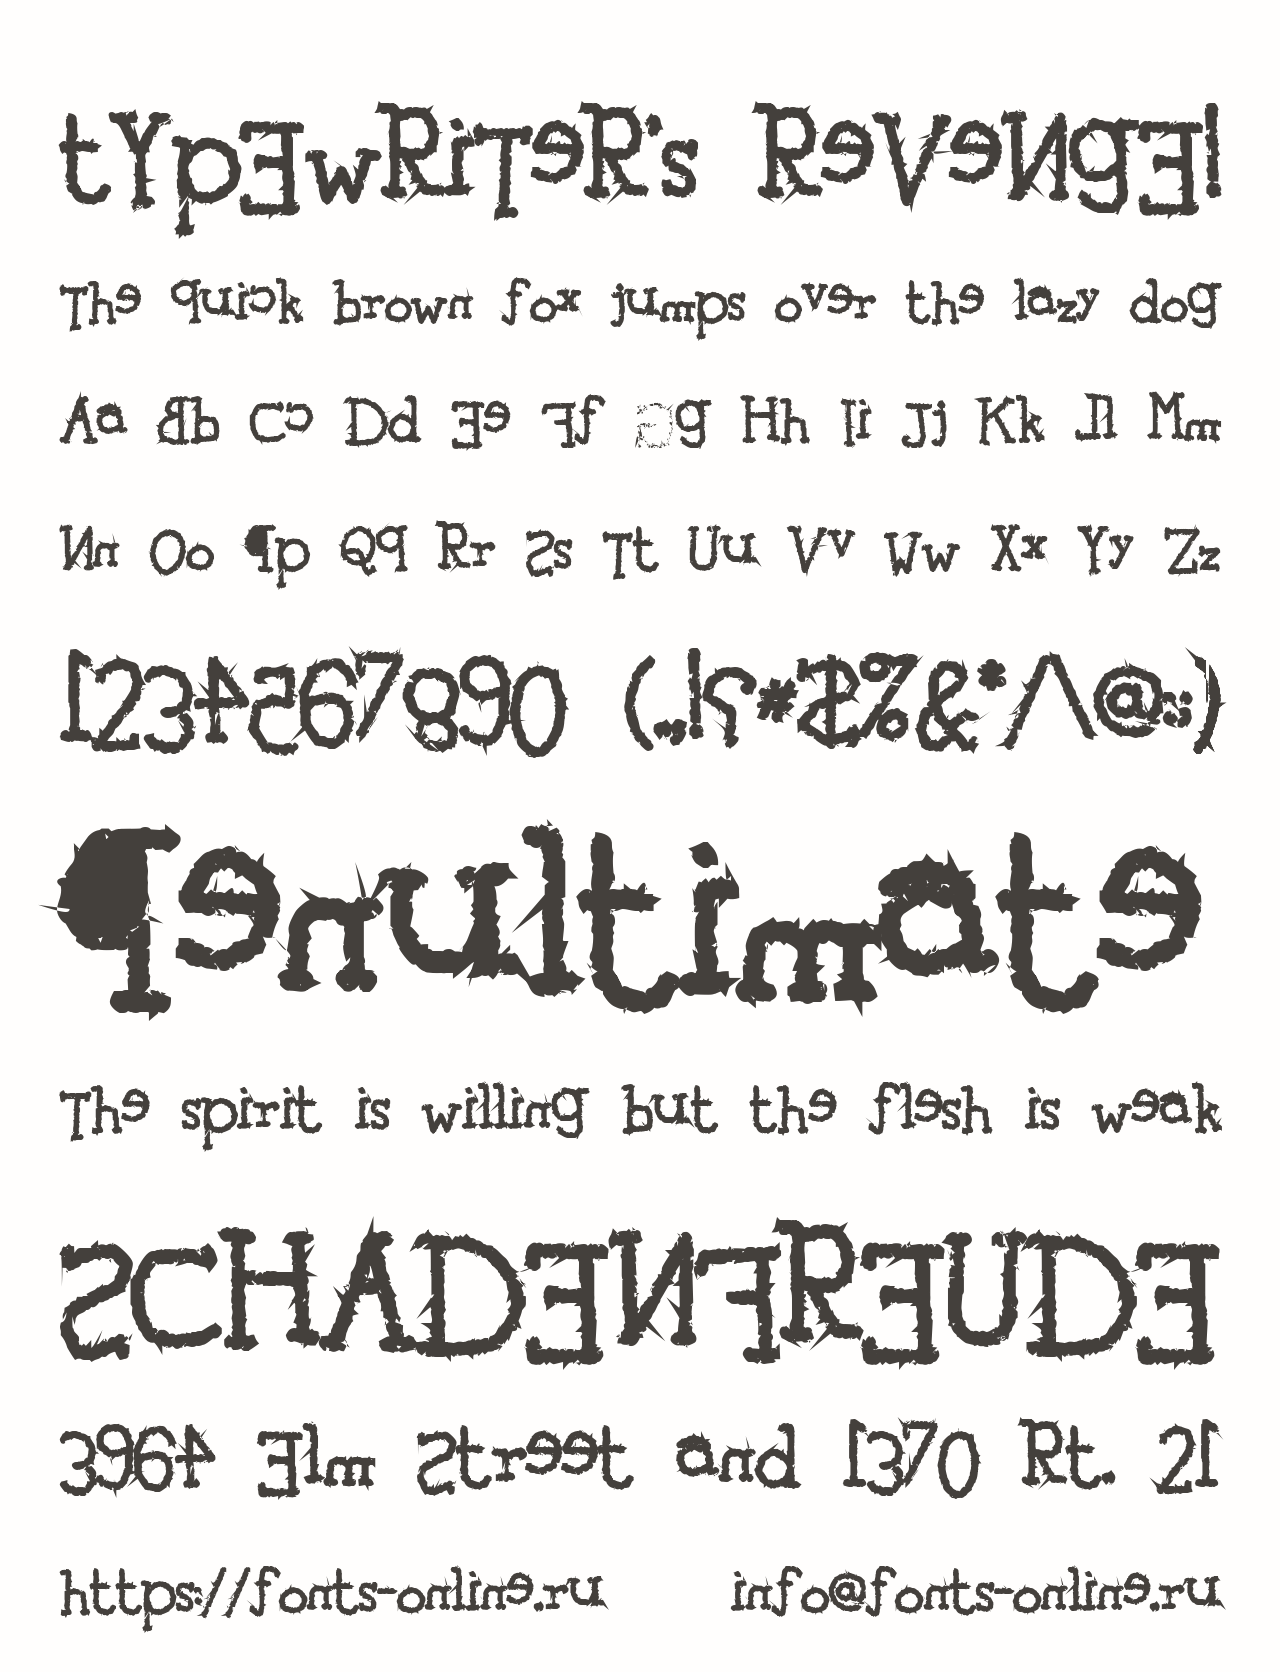 tYpEwRiTeR's ReVeNgE!
The quick brown fox jumps over the lazy dog
Aa Bb Cc Dd Ee Ff Gg Hh Ii Jj Kk Ll Mm
Nn Oo Pp Qq Rr Ss Tt Uu Vv Ww Xx Yy Zz
1234567890 (.,!?#$%&*/\@:;)
Penultimate
The spirit is willing but the flesh is weak
SCHADENFREUDE
3964 Elm Street and 1370 Rt. 21
https://fonts-online.ru info@fonts-online.ru